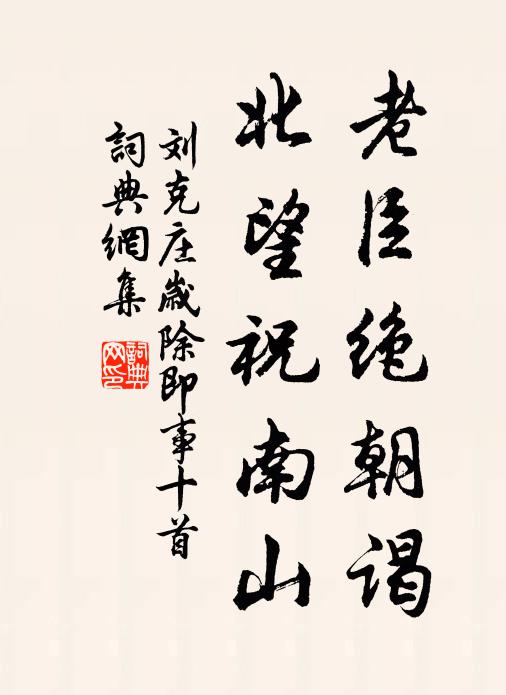 老臣绝朝谒
北望祝南山
刘克庄歲除即事十首
詞典網集
詞典網印